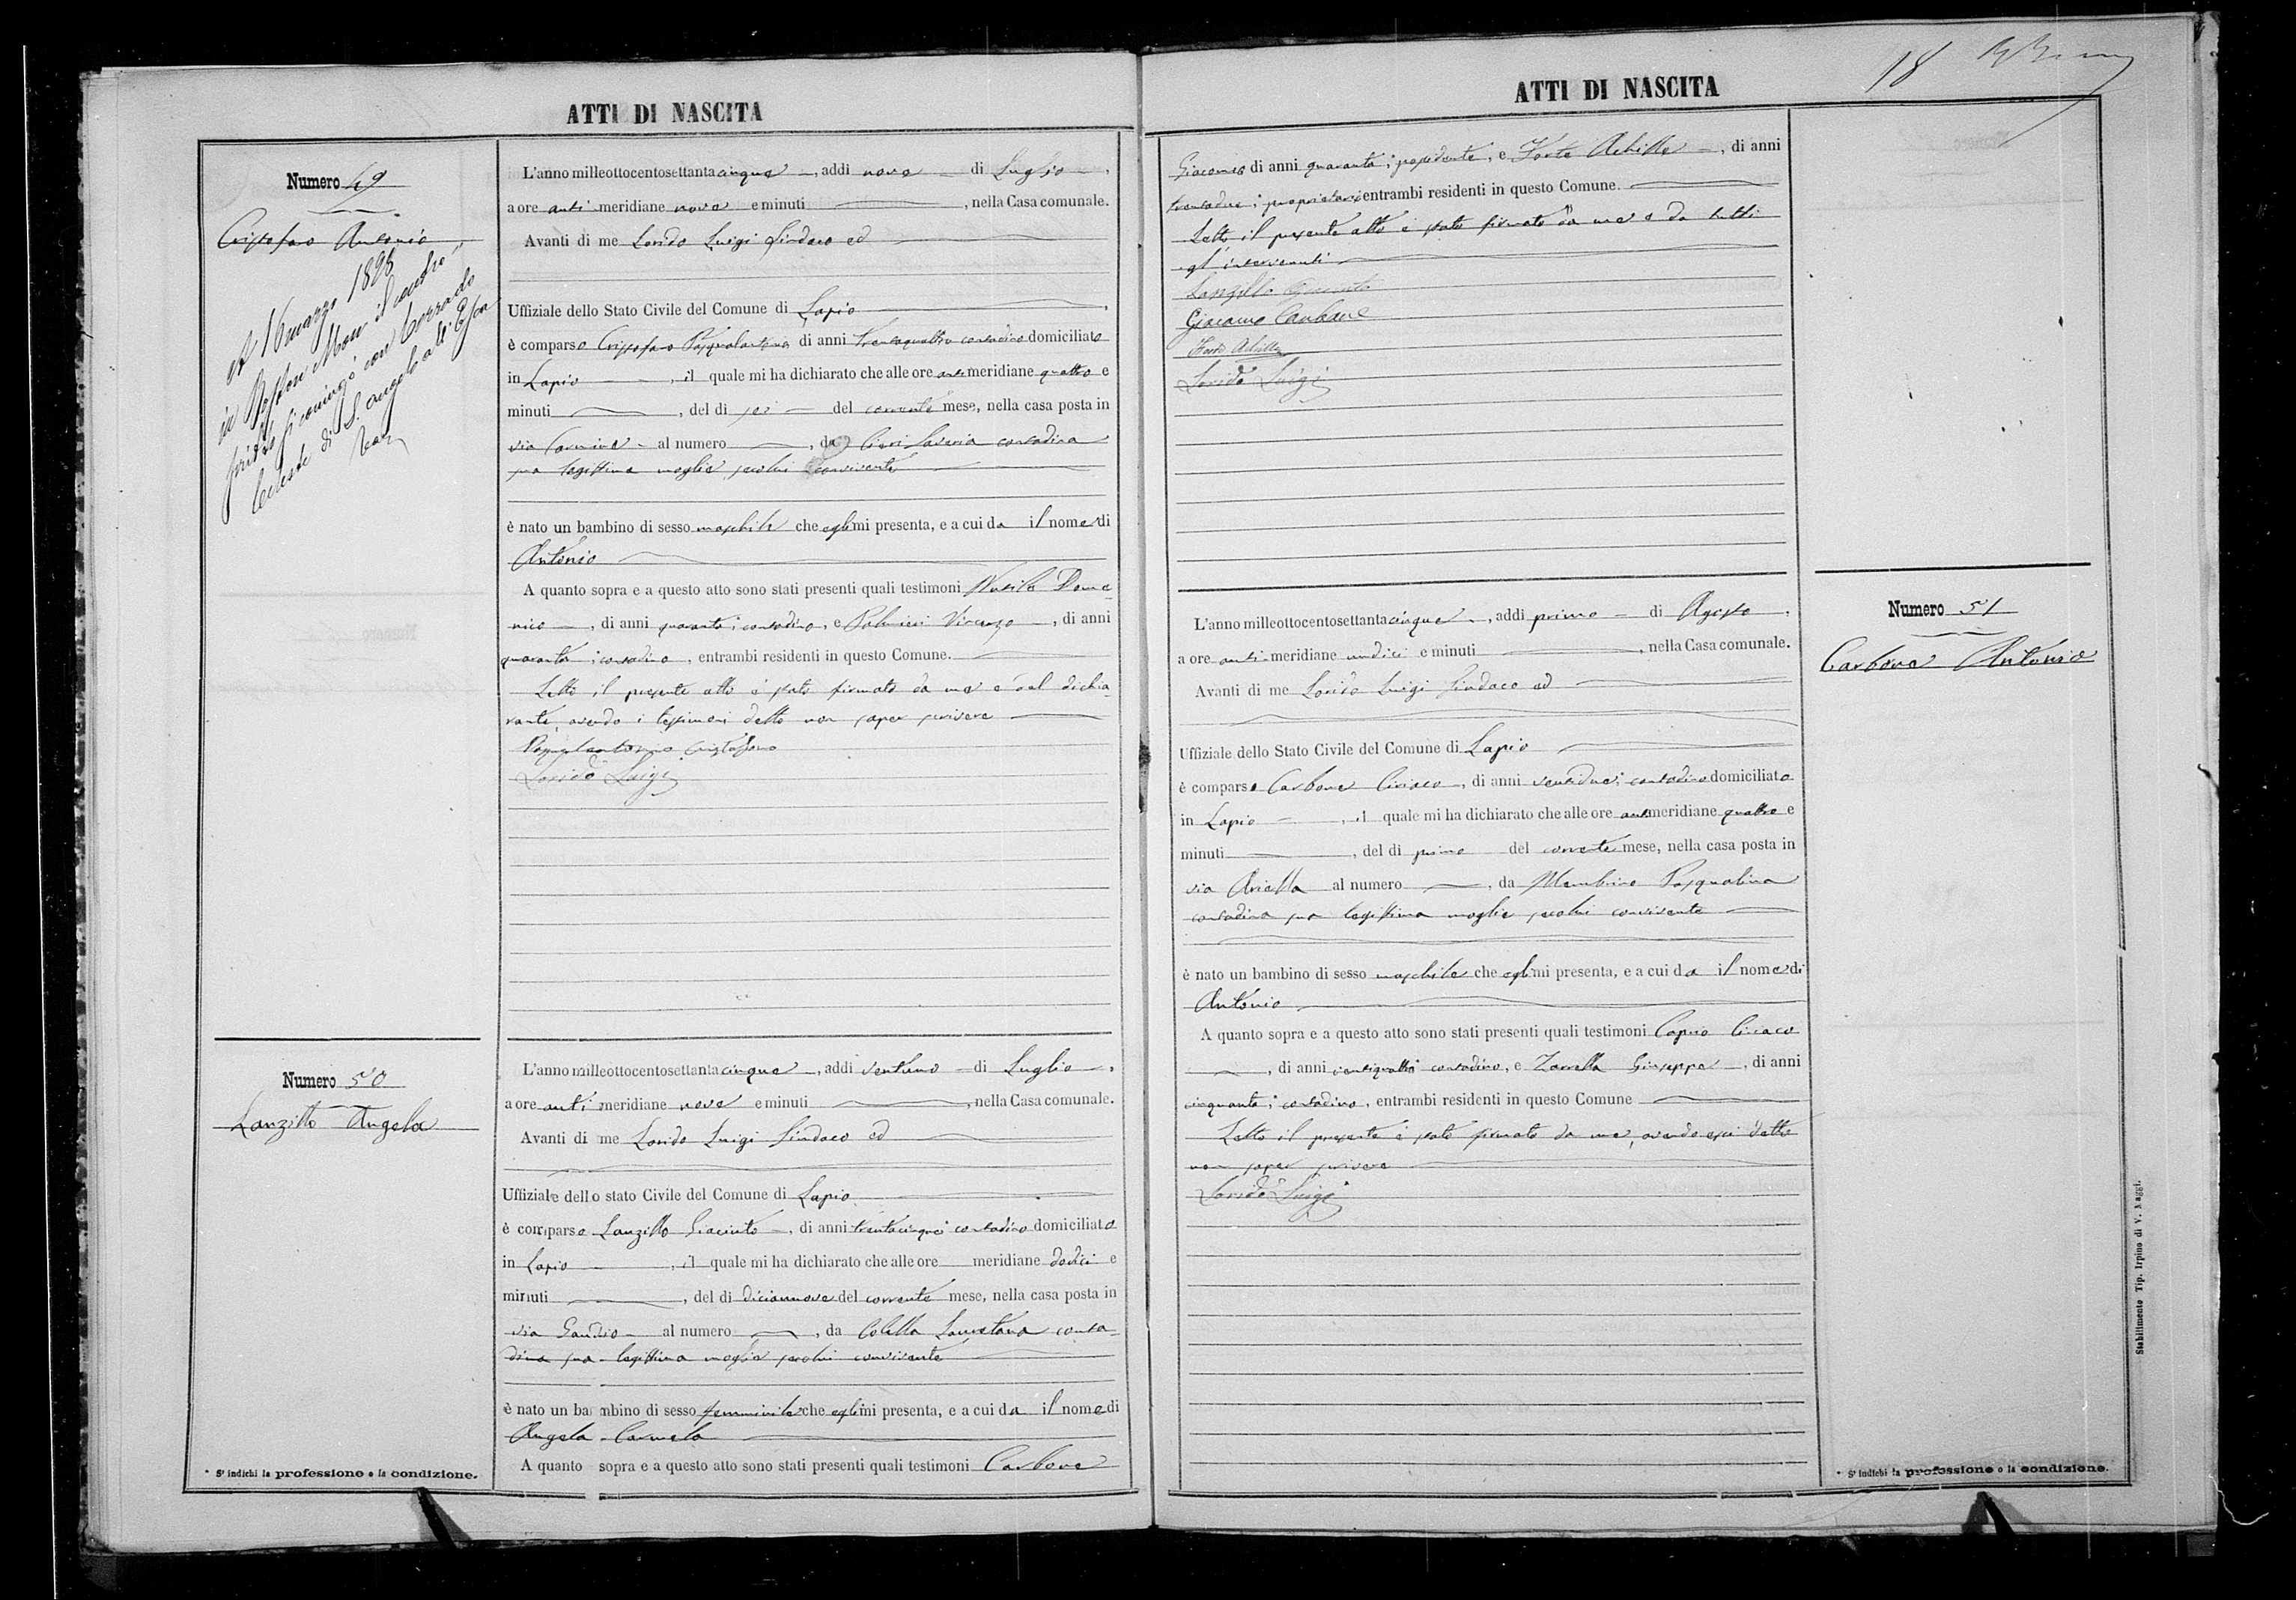 ATTI DI NASCITA
Numero 49
Cristofaro Antonio
A 16 marzo 1898
in Boston Mass il
si coniugò con Corrado
Celeste di S. Angelo all'Esca
L'anno milleottocentosettantacinque, addi nove di Luglio,
a ore anti meridiane nove e minuti , nella Casa comunale.
Avanti di me Lorido Luigi Sindaco ed
Uffiziale dello Stato Civile del Comune di Lapio
è comparso Cristofaro Pasqualantonio, di anni trentaquattro contadino domiciliato
in Lapio , il quale mi ha dichiarato che alle ore antimeridiane quattro e
minuti , del di sei del corrente mese, nella casa posta in
via Carmine al numero , da Saveria contadina
sua legittima moglie secolui convivente
è nato un bambino di sesso maschile che egli mi presenta, e a cui da il nome di
Antonio
A quanto sopra e a questo atto sono stati presenti quali testimoni Dome-
nico , di anni quaranta, contadino, e Palmieri Vincenzo , di anni
quaranta, contadino, entrambi residenti in questo Comune.
Letto il presente atto è stato firmato da me e dal dichia-
rante, avendo i testimoni detto non saper scrivere
Pasqualantonio Cristofaro
Lorido Luigi
Numero 50
Lanzillo Angela
L'anno milleottocentosettantacinque, addi ventuno di Luglio,
a ore anti meridiane nove e minuti , nella Casa comunale.
Avanti di me Lorido Luigi Sindaco ed
Uffiziale dello stato Civile del Comune di Lapio
è comparso Lanzillo Giacinto , di anni trentacinque contadino domiciliato
in Lapio , il quale mi ha dichiarato che alle ore meridiane dodici e
minuti , del di diciannove del corrente mese, nella casa posta in
via Gaudio al numero , da Colella Lauretana conta-
dina sua legittima moglie secolui convivente
è nato un bambino di sesso femminile che egli mi presenta, e a cui da il nome di
Angela Carmela
A quanto sopra e a questo atto sono stati presenti quali testimoni Carbone
* S'indichi la professione o la condizione.
ATTI DI NASCITA
18
Giacomo di anni quaranta, possidente, e Forte Achille , di anni
trentadue, proprietario entrambi residenti in questo Comune.
Letto il presente atto è stato firmato da me e da tutti
gl'intervenuti
Lanzillo Giacinto
Giacomo Carbone
Forte Achille
Lorido Luigi
Numero 51
Carbone Antonio
L'anno milleottocentosettantacinque , addi primo di Agosto ,
a ore anti meridiane undici e minuti , nella Casa comunale.
Avanti di me Lorido Luigi Sindaco ed
Uffiziale dello Stato Civile del Comune di Lapio
è comparso Carbone Ciriaco , di anni ventidue, contadino domiciliato
in Lapio , il quale mi ha dichiarato che alle ore antimeridiane quattro e
minuti , del di primo del corrente mese, nella casa posta in
via Ariella al numero , da Membrino Pasqualina
contadina sua legittima moglie secolui convivente
è nato un bambino di sesso maschile che egli mi presenta, e a cui da il nome di
Antonio
A quanto sopra e a questo atto sono stati presenti quali testimoni Caprio Ciriaco
, di anni ventiquattro contadino, e Zarrella Giuseppe , di anni
cinquanta, contadino, entrambi residenti in questo Comune
Letto il presente è stato firmato da me, avendo essi detto
non saper scrivere
Lorido Luigi
* S'indichi la professione o la condizione.
Stabilimento Tip. Irpino di V. Maggi.